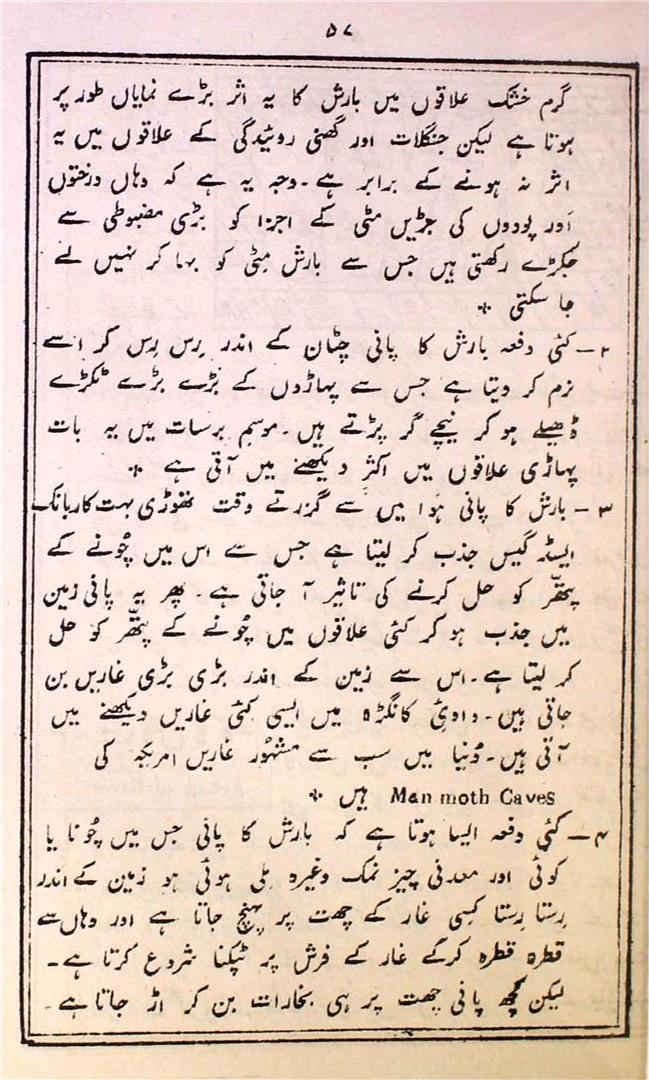 ۵۷
گرم خشک علاقوں میں بارش کا یہ اثر بڑے نمایاں طور پر
ہوتا ہے لیکن جنگلات اور گھنی روئیدگی کے علاقوں میں یہ
اثر نہ ہونے کے برابر ہے۔ وجہ یہ ہے کہ وہاں درختوں
اَور پودوں کی جڑیں مٹی کے اجزا کو بڑی مضبوطی سے
جکڑے رکھتی ہیں جس سے بارش مِٹی کو بہا کر نہیں لے
جا سکتی *
۲ – کئی دفعہ بارش کا پانی چٹان کے اندر رِس رِس کر اسے
نرم کر دیتا ہے جس سے پہاڑوں کے بڑے بڑے ٹکڑے
ڈھیلے ہو کر نیچے گر پڑتے ہیں۔ موسمِ برسات میں یہ بات
پہاڑی علاقوں میں اکثر دیکھنے میں آتی ہے *
۳ – بارش کا پانی ہَوا میں سے گزرتے وقت تھوڑی بہت کاربانک
ایسڈ گیس جذب کر لیتا ہے جس سے اس میں چُونے کے
پتھّر کو حل کرنے کی تاثیر آ جاتی ہے۔ پھر یہ پانی زمین
میں جذب ہو کر کئی علاقوں میں چُونے کے پتھّر کو حل
کر لیتا ہے۔ اس سے زمین کے اندر بڑی بڑی غاریں بن
جاتی ہیں۔ وادیٔ کانگڑہ میں ایسی کئی غاریں دیکھنے میں
آتی ہیں۔ دُنیا میں سب سے مشہُور غاریں امریکہ کی
Mammoth Caves ہیں *
۴ – کئی دفعہ ایسا ہوتا ہے کہ بارش کا پانی جس میں چُونا یا
کوئی اور معدنی چیز نمک وغیرہ مِلی ہوئی ہو زمین کے اندر
رِستا رِستا کِسی غار کے چھت پر پہنچ جاتا ہے اور وہاں سے
قطرہ قطرہ کرکے غار کے فرش پر ٹپکنا شروع کرتا ہے۔
لیکن کُچھ پانی چھت پر ہی بخارات بن کر اڑ جاتا ہے۔